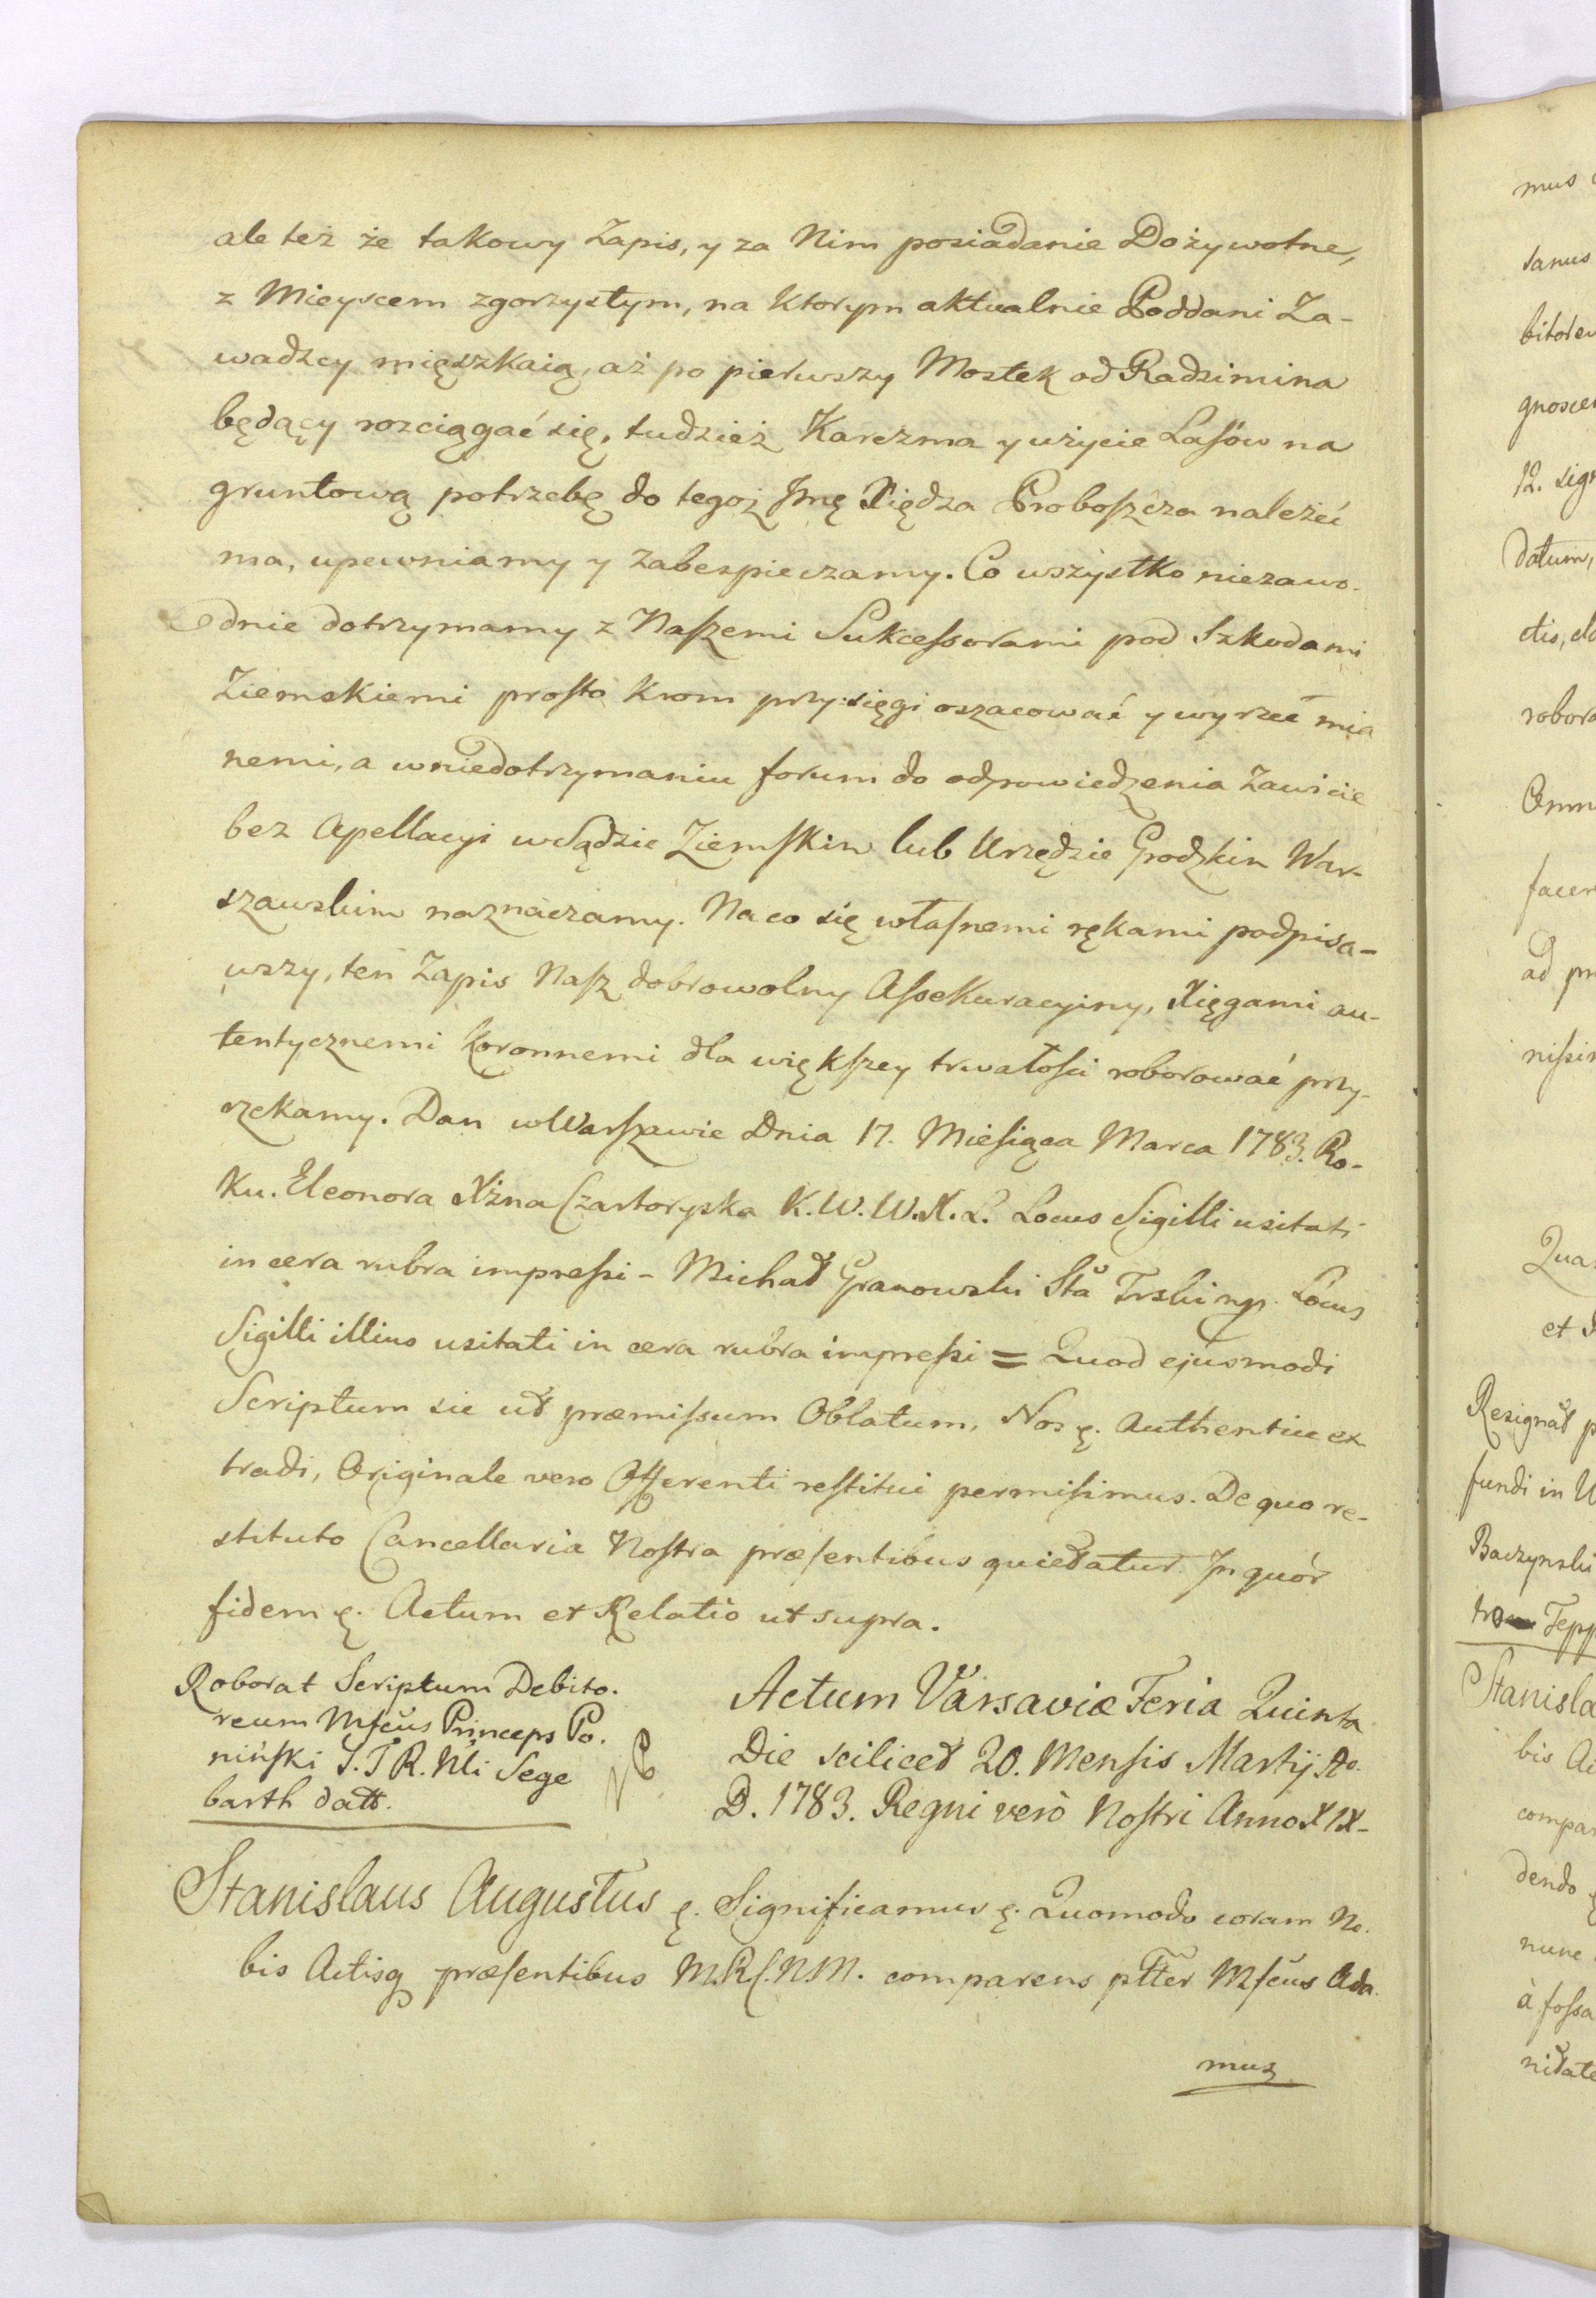 ale też że takowy Zapis, y za Nim posiadanie Dożywotne,
z Mieyscem zgorzystym, na ktorym aktualnie Poddani Za-
wadzcy mięszkaią, aż po pierwszy Mostek od Radzimina
będący rozciągać się, tudzież Karczma y użycie Lasów na
gruntową potrzebę do tegoż Jmę Xiędza Proboszcza należeć
ma, upewniamy y zabespieczamy. Co wszystko niezawo-
dnie dotrzymamy z Naszemi Sukcessorami pod Szkodami
Ziemskiemi prosto krom przysięgi oszacować y wyrzec mia
nemi, a wniedotrzymaniu forum do odpowiedzenia Zawicie
bez Apellacyi w Sądzie Ziemskim lub Urzędzie Grodzkim War-
szawskim naznaczamy. Na co się własnemi rękami podpisa-
wszy, ten Zapis Nasz dobrowolny Assekuracyiny, Xięgami au-
tentycznemi Koronnemi dla większey trwałości roborować przy-
rzekamy. Dan w Warszawie Dnia 17. Miesiąca Marca 1783. Ro-
ku. Eleonora Xżna Czartoryska K. W. W. X. L. Locus Sigilli usitati
in cera rubra impressi - Michał Granowski Sta Trski mp. Locus
Sigilli illius usitati in cera rubra impressi = Quod ejusmodi
Scriptum sic ut præmissum Oblatum, Nos ę. Authentice ex
tradi, Originale vero Offerenti restitui permisimus. De quo re-
stituto Cancellaria Nostra præsentibus quietatur. In quór
fidem ę. Actum et Relatio ut supra.
Roborat Scriptum Debito.
reum Mfcus Princeps Po.
niński S. T R. Nli Sege
barth datt.
Actum Varsaviæ Feria Quinta
Die scilicet 20. Mensis Martij Ao.
D. 1783. Regni verò Nostri Anno XIX-
Stanislaus Augustus ę. Significamus ę. Quomodo coram No.
bis Actisq præsentibus M.R.C.N.M. comparens pttèr Mfcus Ada.
mus
mus
sanus
bitorem
12. sig
datum,
ad pr
Qua
et
Resignat p
fundi in
Baczynski
Tepp
Stanisla
bis Ac
compar
dendo
nunc
à fossa